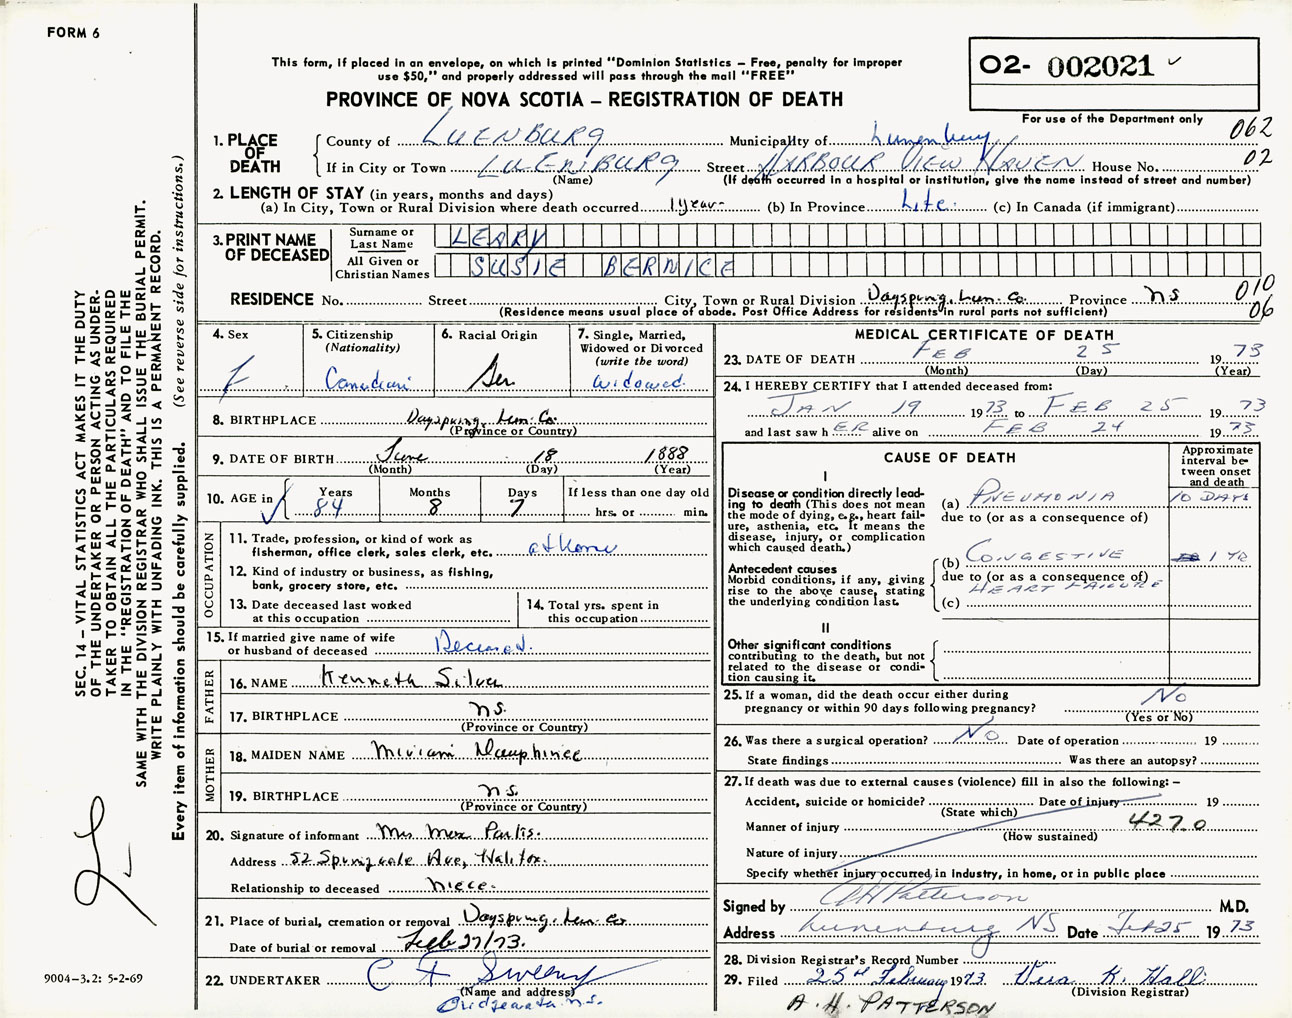 FORM 6
This form, if placed in an envelope, on which is printed "Dominion Statistics – Free, penalty for improper
use $50," and properly addressed will pass through the mail "FREE"
PROVINCE OF NOVA SCOTIA – REGISTRATION OF DEATH
O2- 002021
For use of the Department only
062
02
1. PLACE OF DEATH
County of LUENBURG Municipality of Lunenburg
If in City or Town LUENBURG Street HARBOUR VIEW HAVEN House No.
(Name) (If death occurred in a hospital or institution, give the name instead of street and number)
2. LENGTH OF STAY (in years, months and days)
(a) In City, Town or Rural Division where death occurred 1 year- (b) In Province Life (c) In Canada (if immigrant)
3. PRINT NAME OF DECEASED
Surname or Last Name LEARY
All Given or Christian Names SUSIE BERNICE
RESIDENCE No. Street City, Town or Rural Division Dayspring, Lun. Co. Province NS
010
06
(Residence means usual place of abode. Post Office Address for residents in rural parts not sufficient)
4. Sex
F
5. Citizenship (Nationality)
Canadian
6. Racial Origin
Ger
7. Single, Married, Widowed or Divorced (write the word)
Widowed
8. BIRTHPLACE Dayspring, Lun. Co.
(Province or Country)
9. DATE OF BIRTH June 18 1888
(Month) (Day) (Year)
10. AGE in
Years 84 Months 8 Days 7 If less than one day old
hrs. or min.
OCCUPATION
11. Trade, profession, or kind of work as
fisherman, office clerk, sales clerk, etc. at Home
12. Kind of industry or business, as fishing,
bank, grocery store, etc.
13. Date deceased last worked
at this occupation
14. Total yrs. spent in
this occupation
15. If married give name of wife
or husband of deceased Deceased.
FATHER
16. NAME Kenneth Silver
17. BIRTHPLACE N.S.
(Province or Country)
MOTHER
18. MAIDEN NAME Miriam Dauphinee
19. BIRTHPLACE N.S.
(Province or Country)
20. Signature of informant Mrs Max Parks.
Address 52 Springvale Ave, Halifax.
Relationship to deceased Niece.
21. Place of burial, cremation or removal Dayspring, Lun. Co
Date of burial or removal Feb 27/73.
22. UNDERTAKER C F Sweeny
(Name and address)
Bridgewater N.S.
MEDICAL CERTIFICATE OF DEATH
23. DATE OF DEATH FEB 25 19 73
(Month) (Day) (Year)
24. I HEREBY CERTIFY that I attended deceased from:
JAN 19 19 73 to FEB 25 19 73
and last saw h ER alive on FEB 24 19 73
CAUSE OF DEATH
Approximate interval between onset and death
I
Disease or condition directly leading to death (This does not
mean the mode of dying, e.g., heart failure, asthenia, etc. It means the
disease, injury, or complication
which caused death.)
(a) PNEUMONIA 10 DAYS
due to (or as a consequence of)
Antecedent causes
Morbid conditions, if any, giving
rise to the above cause, stating
the underlying condition last.
(b) CONGESTIVE 1 YR
due to (or as a consequence of)
HEART FAILURE
(c)
II
Other significant conditions
contributing to the death, but not
related to the disease or condition causing it.
25. If a woman, did the death occur either during
pregnancy or within 90 days following pregnancy? No
(Yes or No)
26. Was there a surgical operation? No Date of operation 19
State findings Was there an autopsy?
27. If death was due to external causes (violence) fill in also the following:–
Accident, suicide or homicide? Date of injury 19
(State which)
Manner of injury 427.0
(How sustained)
Nature of injury
Specify whether injury occurred in industry, in home, or in public place
Signed by AH Patterson M.D.
Address Lunenburg NS Date Feb 25 19 73
28. Division Registrar's Record Number
29. Filed 25th February 1973 Vera K. Hall
(Division Registrar)
A. H. PATTERSON
SEC. 14 – VITAL STATISTICS ACT MAKES IT THE DUTY
OF THE UNDERTAKER OR PERSON ACTING AS UNDER-
TAKER TO OBTAIN ALL THE PARTICULARS REQUIRED
IN THE "REGISTRATION OF DEATH" AND TO FILE THE
SAME WITH THE DIVISION REGISTRAR WHO SHALL ISSUE THE BURIAL PERMIT.
WRITE PLAINLY WITH UNFADING INK. THIS IS A PERMANENT RECORD.
Every item of information should be carefully supplied. (See reverse side for instructions.)
9004–3.2: 5-2-69